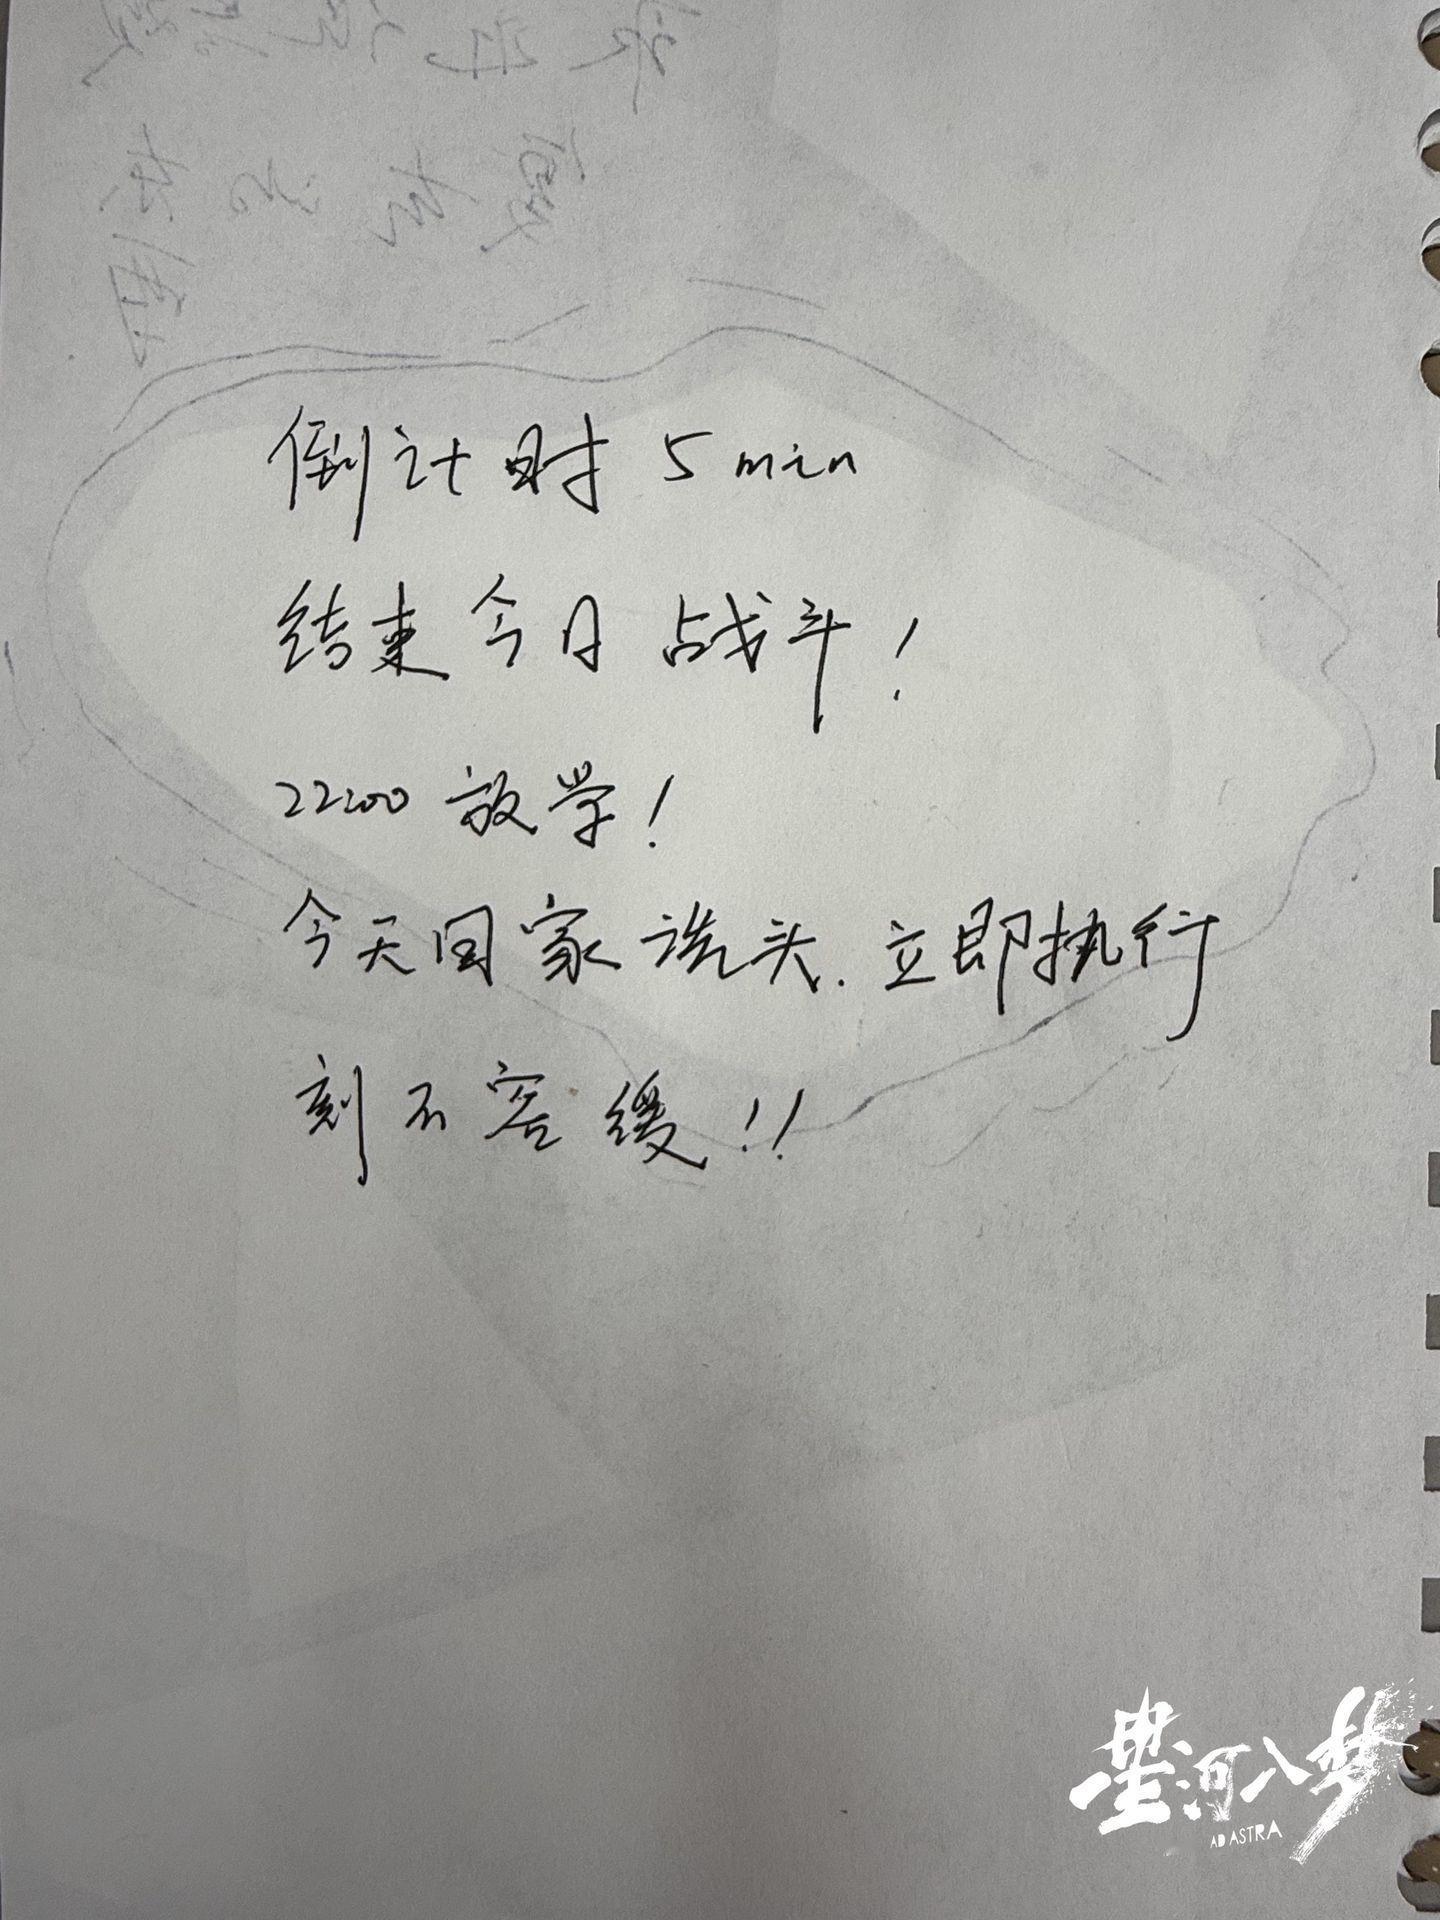 倒计时 5min
结束今日战斗!
22:00 放学!
今天回家洗头.立即执行
刻不容缓!!
星河入梦
AD ASTRA